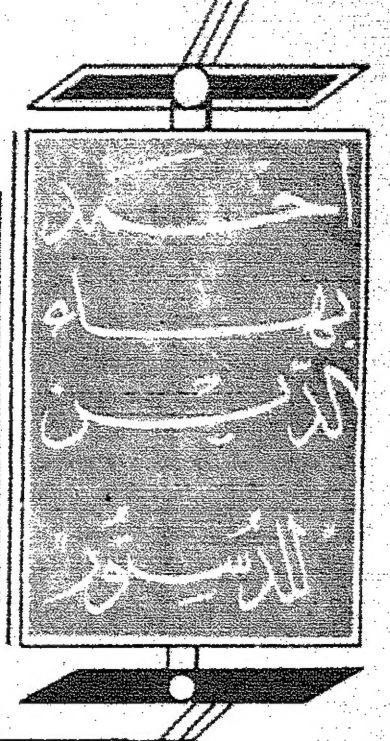 أحمد
بهاء
الدين
"الدستور"